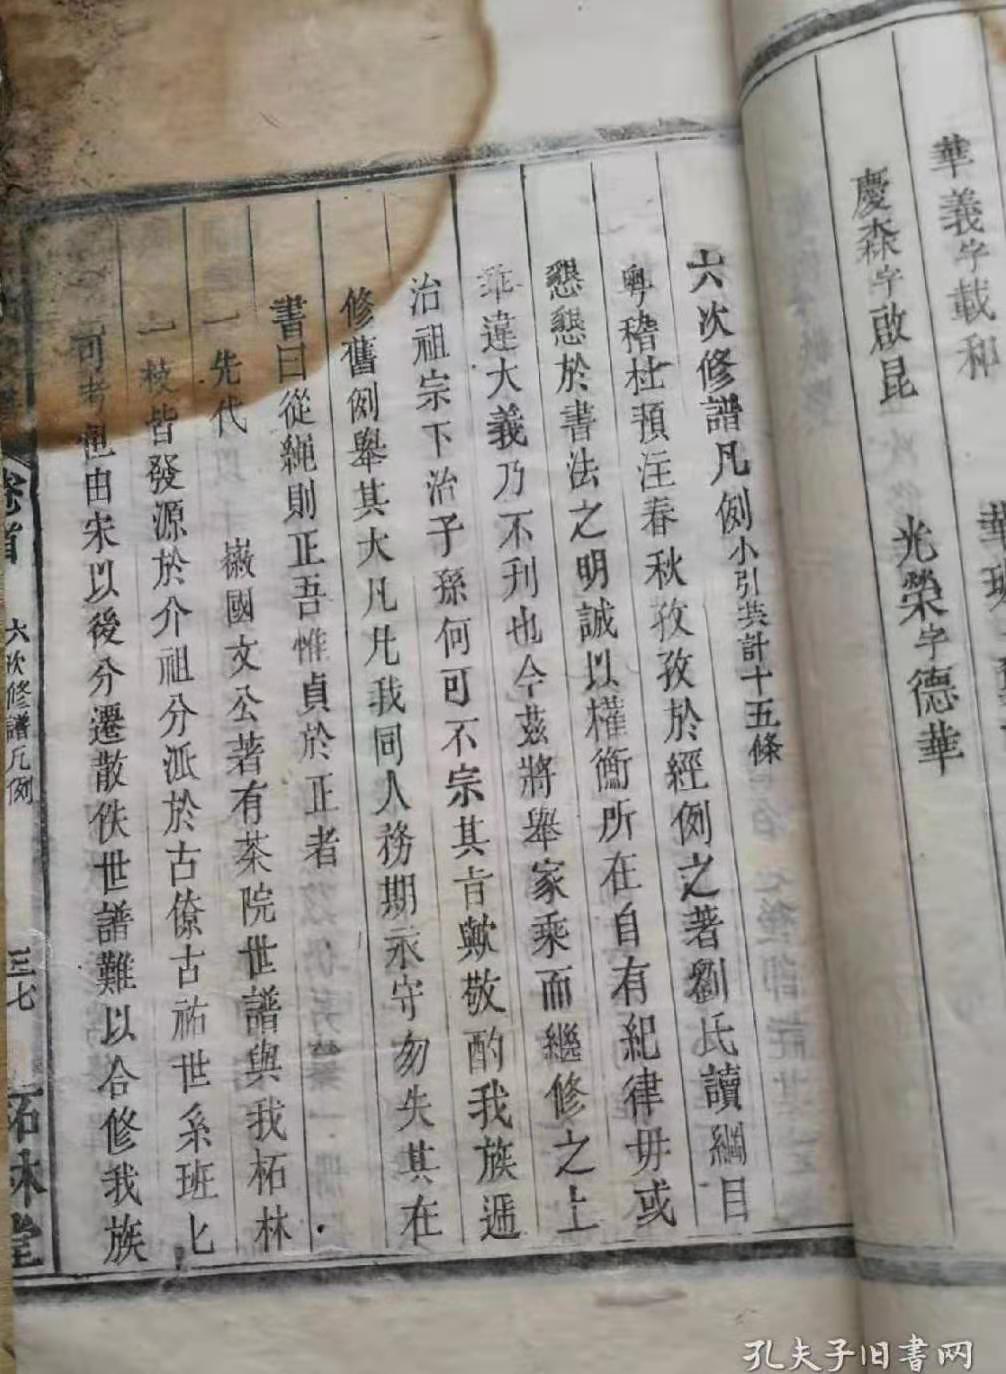 華義字載和
華
慶森字啟昆
光榮字德華
六次修譜凡例小引共計十五條
粵稽杜預注春秋孜孜於經例之著劉氏讀綱目
懇懇於書法之明誠以權衡所在自有紀律毋或
乖違大義乃不刊也今茲將舉家乘而繼修之上
治祖宗下治子孫何可不宗其旨歟敬酌我族遞
修舊例舉其大凡凡我同人務期永守勿失其在
書曰從繩則正吾惟貞於正者
一先代 徽國文公著有茶院世譜與我柘林
一枝皆發源於介祖分派於古僚古祐世系班匕
可考也由宋以後分遷散佚世譜難以合修我族
卷首 六次修譜凡例 三七 柘林堂
孔夫子旧書网